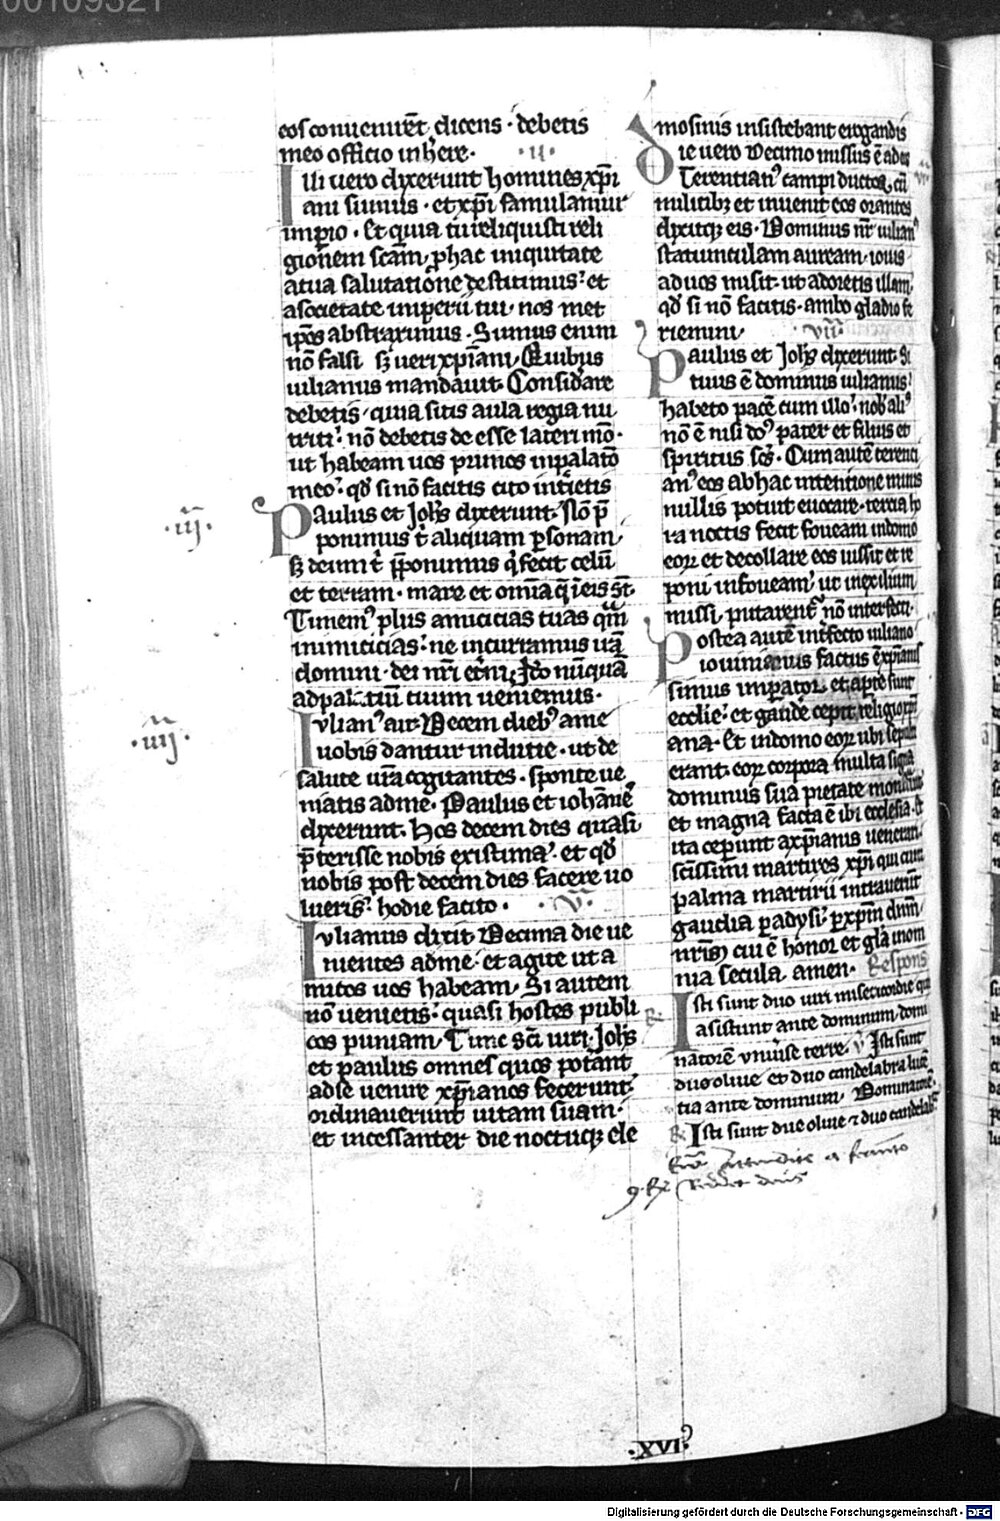 00109321
eos conueniret̄ dicens · debetis
meo officio inhere · ·ıı·
Illi uero dixerunt homines xp̄i
ani sumus · et xp̄i famulamur
imp̲io · Et quia tu reliquisti reli
gionem sc̄am, p̲hac iniquitate
atua salutatiōe destitimus: et
asocietate imperii tui · nos met
ip̄os abstraximus · Sumus enim
nō falsi sꝫ ueri xp̄iani, Quibus
iulianus mandauit Considare
debetis, quia sitis aula regia nu
triti: nō debetis de esse lateri mō ·
ut habeam uos primos inpalatō
meo: qd̄ si nō facitis cito int̄ietis
·ııȷ·
Paulus et Joh̄s dixerunt · Nō p̄
ponimus t̄ aliquam p̲sonam,
sꝫ deum t̄ p̄ponimus q̇ fecit celū
et terram · mare et om̄ia q̄ ī eis st̄ ·
Timemꝰ plus amicicias tuas q̄m
inimicicias: ne incurramus irā
domini · dei nr̄i et̄ni, Jtō nūquā
adpalatiū tuum ueniemus ·
·ıııȷ·
Iulianꝰ ait · Decem diebꝰ ame
uobis dantur indutie · ut de
salute ur̄a cogitantes · sponte ue
niatis adme · Paulus et ioh̄anēs
dixerunt · Hos decem dies quasi
p̄terisse nobis existima: et qd̄
nobis post decem dies facere uo
lueris: hodie facito · ·v̄·
Iulianus dixit · Decima die ue
nientes adme · et agite ut a
micos uos habeam, Si autem
nō uenietis: quasi hostes publi
cos puniam · Tunc sc̄i uiri Joh̄s
et paulus omnes quos pot̄ant
adse uenire xp̄ianos fecerunt
ordinauerunt uitam suam ·
et incessanter die noctuqꝫ ele
mosinis insistebant erogandis
Die uero Decimo missus ē ad eos
Terentianꝰ campi ductor, cū
militibꝫ et inuenit eos orantes
dixitqꝫ eis · Dominus nr̄ iulianꝰ
statiunculam auream · iouis
aduos misit · ut adoretis illam,
qd̄ si nō facitis · ambo gladio fe
riemini, ·vıı·
Paulus et Joh̄s dixerunt · Si
tuus ē dominus iulianus:
habeto pacē cum illo: nob̄ aliꝰ
nō ē nisi dō: pater et filius et
spiritus sc̄s · Cum autē terenti
anꝰ eos abhac intentione minis
nullis potuit euocare · tercia ho
ra noctis fecit foueam indomo
eoꝝ et decollare eos iussit et re
poni infoueam: ut inexilium
missi, putarent̄ nō interfecti ·
Postea autē int̄fecto iuliano
iouinianus factus ē xp̄ianis
simus imp̲ator, et ap̲te sunt
ecclie: et gaudē cepit religio xp̄i
ana · Et indomo eoꝝ ubi sepulta
erant eoꝝ corpora multa signa
dominus sua pietate monstrauit
et magna facta ē ibi ecclesia · Et
ita ceperunt axp̄ianis uenerari
sc̄issimi martires xp̄i qui cum
palma martirii intrauerūt
gaudia p̲adysi: p̲xp̄m dn̄m
nr̄m cui ē honor et gl̄a inom
nia secula · amen · Respons
℟ Isti sunt duo uiri misericordie qui
asistunt ante dominum domi
natorē vniu̇se terre · ℣ Isti sunt
due oliue et duo candelabra lucē
tia ante dominum, Dominatorē ·
℟ Isti sunt due oliue ⁊ duo candelab̄
·XVI:
Digitalisierung gefördert durch die Deutsche Forschungsgemeinschaft · DFG